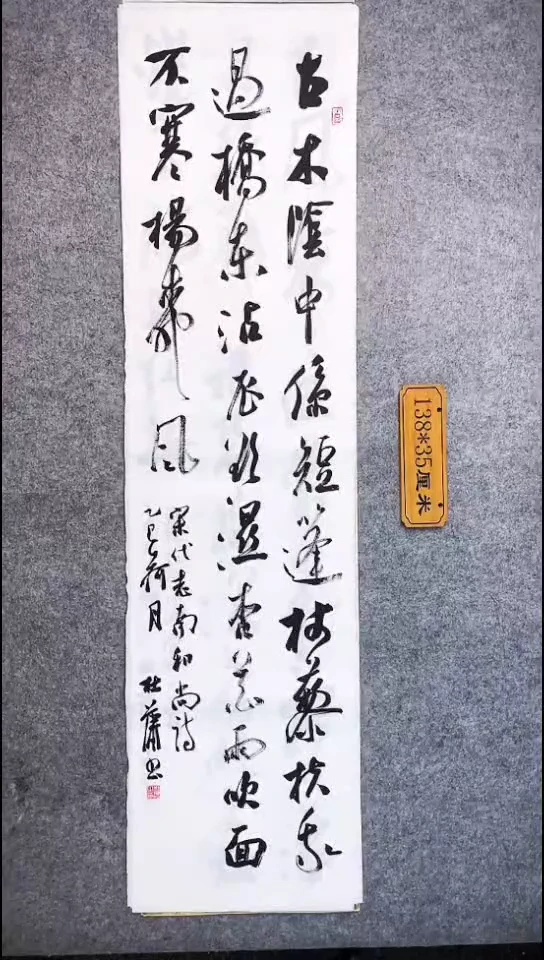 古木陰中係短篷杖藜扶我
過橋東沾衣欲濕杏花雨吹面
不寒楊柳風
宋代志南和尚詩
乙巳荷月
杜蕭书
138*35厘米